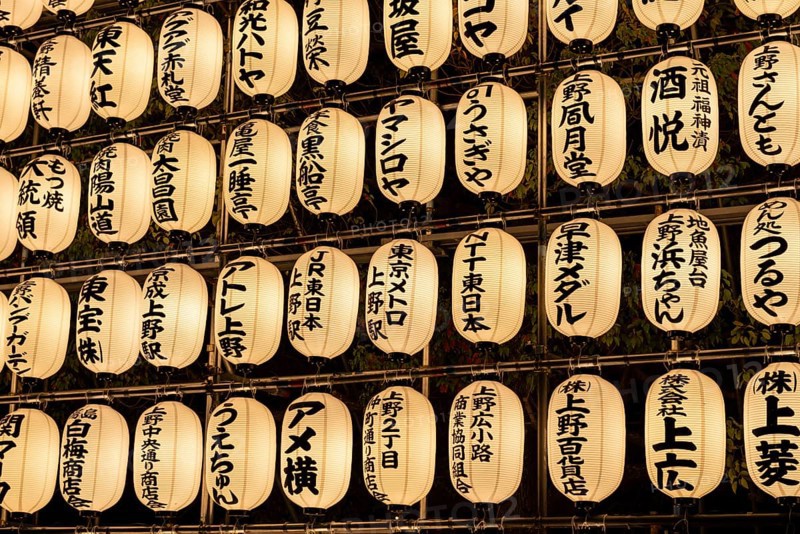 東天紅
アクア赤札堂
和光ハトヤ
坂屋
焼肉陽山道
焼肉大昌園
亀屋一睡亭
洋食黒船亭
ヤマシロヤ
うさぎや
上野凮月堂
元祖福神漬
酒悦
上野さんとも
もつ焼
大統領
東宝㈱
京成上野駅
アトレ上野
JR東日本
上野駅
東京メトロ
上野駅
NTT東日本
早津メダル
地魚屋台
上野浜ちゃん
めん処
つるや
白梅商店会
上野中央通り商店会
うえちゅん
アメ横
上野2丁目
仲町通り商店会
上野広小路
商業協同組合
(株)
上野百貨店
株式会社
上広
(株)
上菱